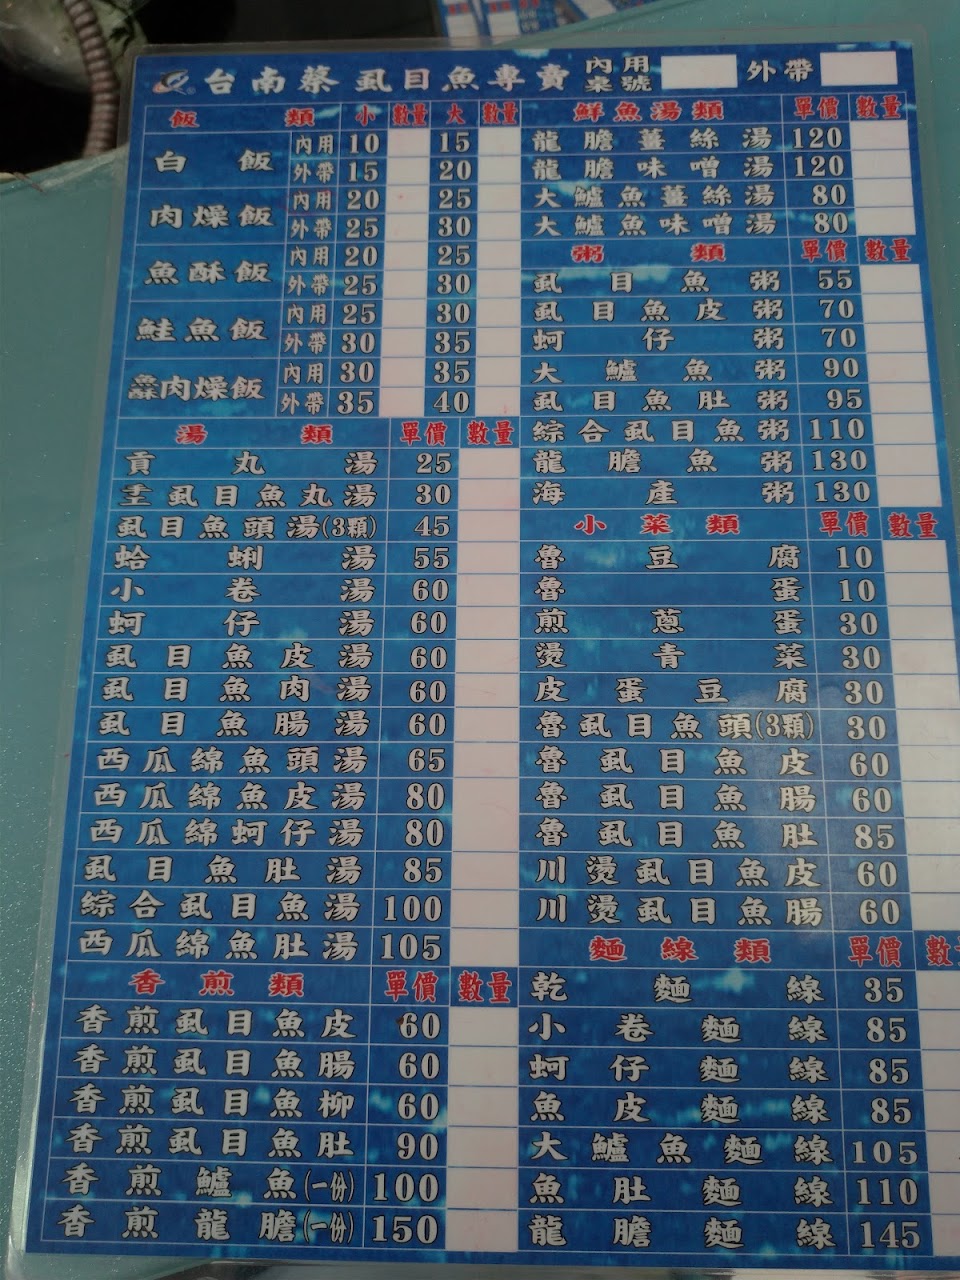 台南蔡虱目魚專賣 內用桌號 外帶
飯類 小 數量 大 數量
白飯 內用 10 15
外帶 15 20
肉燥飯 內用 20 25
外帶 25 30
魚酥飯 內用 20 25
外帶 25 30
鮭魚飯 內用 25 30
外帶 30 35
魚酥肉燥飯 內用 30 35
外帶 35 40
湯類 單價 數量
貢丸湯 25
手工虱目魚丸湯 30
虱目魚頭湯(3顆) 45
蛤蜊湯 55
小卷湯 60
蚵仔湯 60
虱目魚皮湯 60
虱目魚肉湯 60
虱目魚腸湯 60
西瓜綿魚頭湯 65
西瓜綿魚皮湯 80
西瓜綿蚵仔湯 80
虱目魚肚湯 85
綜合虱目魚湯 100
西瓜綿魚肚湯 105
香煎類 單價 數量
香煎虱目魚皮 60
香煎虱目魚腸 60
香煎虱目魚柳 60
香煎虱目魚肚 90
香煎鱸魚(一份) 100
香煎龍膽(一份) 150
鮮魚湯類 單價 數量
龍膽薑絲湯 120
龍膽味噌湯 120
大鱸魚薑絲湯 80
大鱸魚味噌湯 80
粥類 單價 數量
虱目魚粥 55
虱目魚皮粥 70
蚵仔粥 70
大鱸魚粥 90
虱目魚肚粥 95
綜合虱目魚粥 110
龍膽魚粥 130
海產粥 130
小菜類 單價 數量
魯豆腐 10
魯蛋 10
煎蔥蛋 30
燙青菜 30
皮蛋豆腐 30
魯虱目魚頭(3顆) 30
魯虱目魚皮 60
魯虱目魚腸 60
魯虱目魚肚 85
川燙虱目魚皮 60
川燙虱目魚腸 60
麵線類 單價 數量
乾麵線 35
小卷麵線 85
蚵仔麵線 85
魚皮麵線 85
大鱸魚麵線 105
魚肚麵線 110
龍膽麵線 145